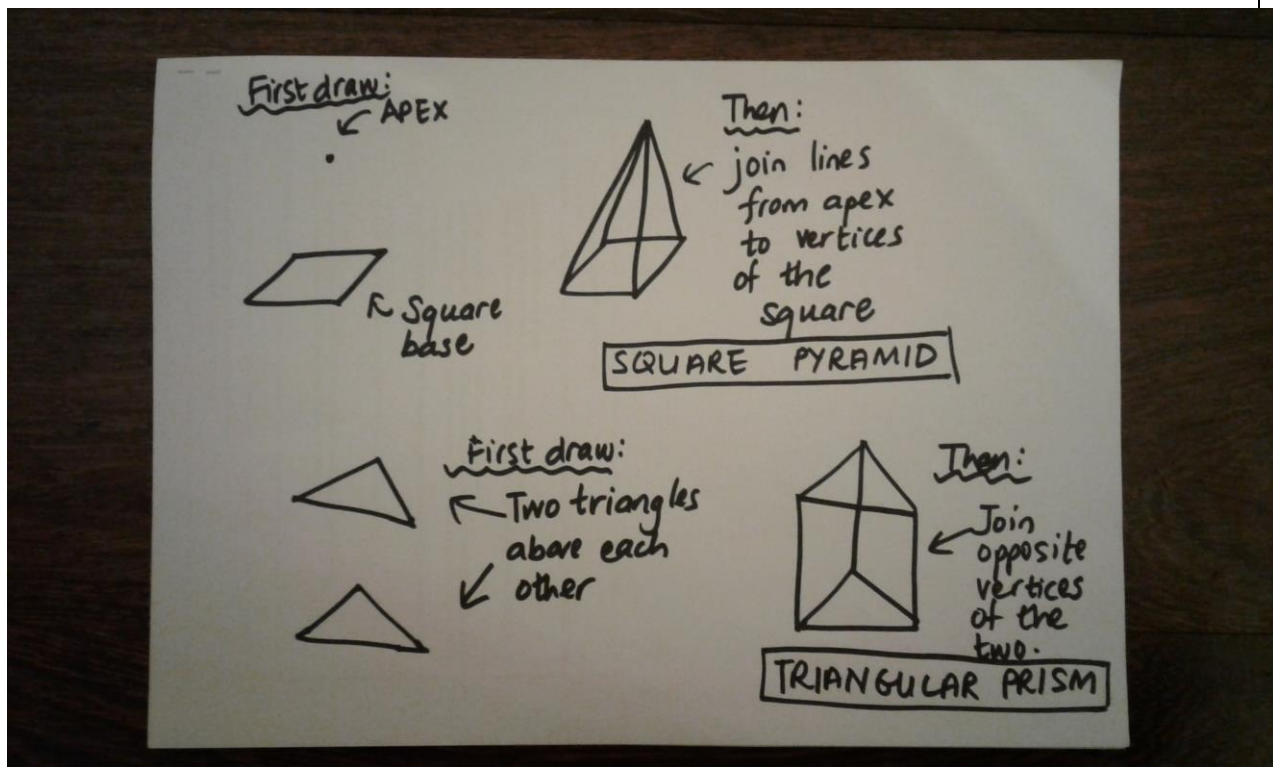 First draw:
APEX
Square
base
Then:
join lines
from apex
to vertices
of the
square
SQUARE PYRAMID
First draw:
Two triangles
above each
other
Then:
Join
opposite
vertices
of the
two.
TRIANGULAR PRISM